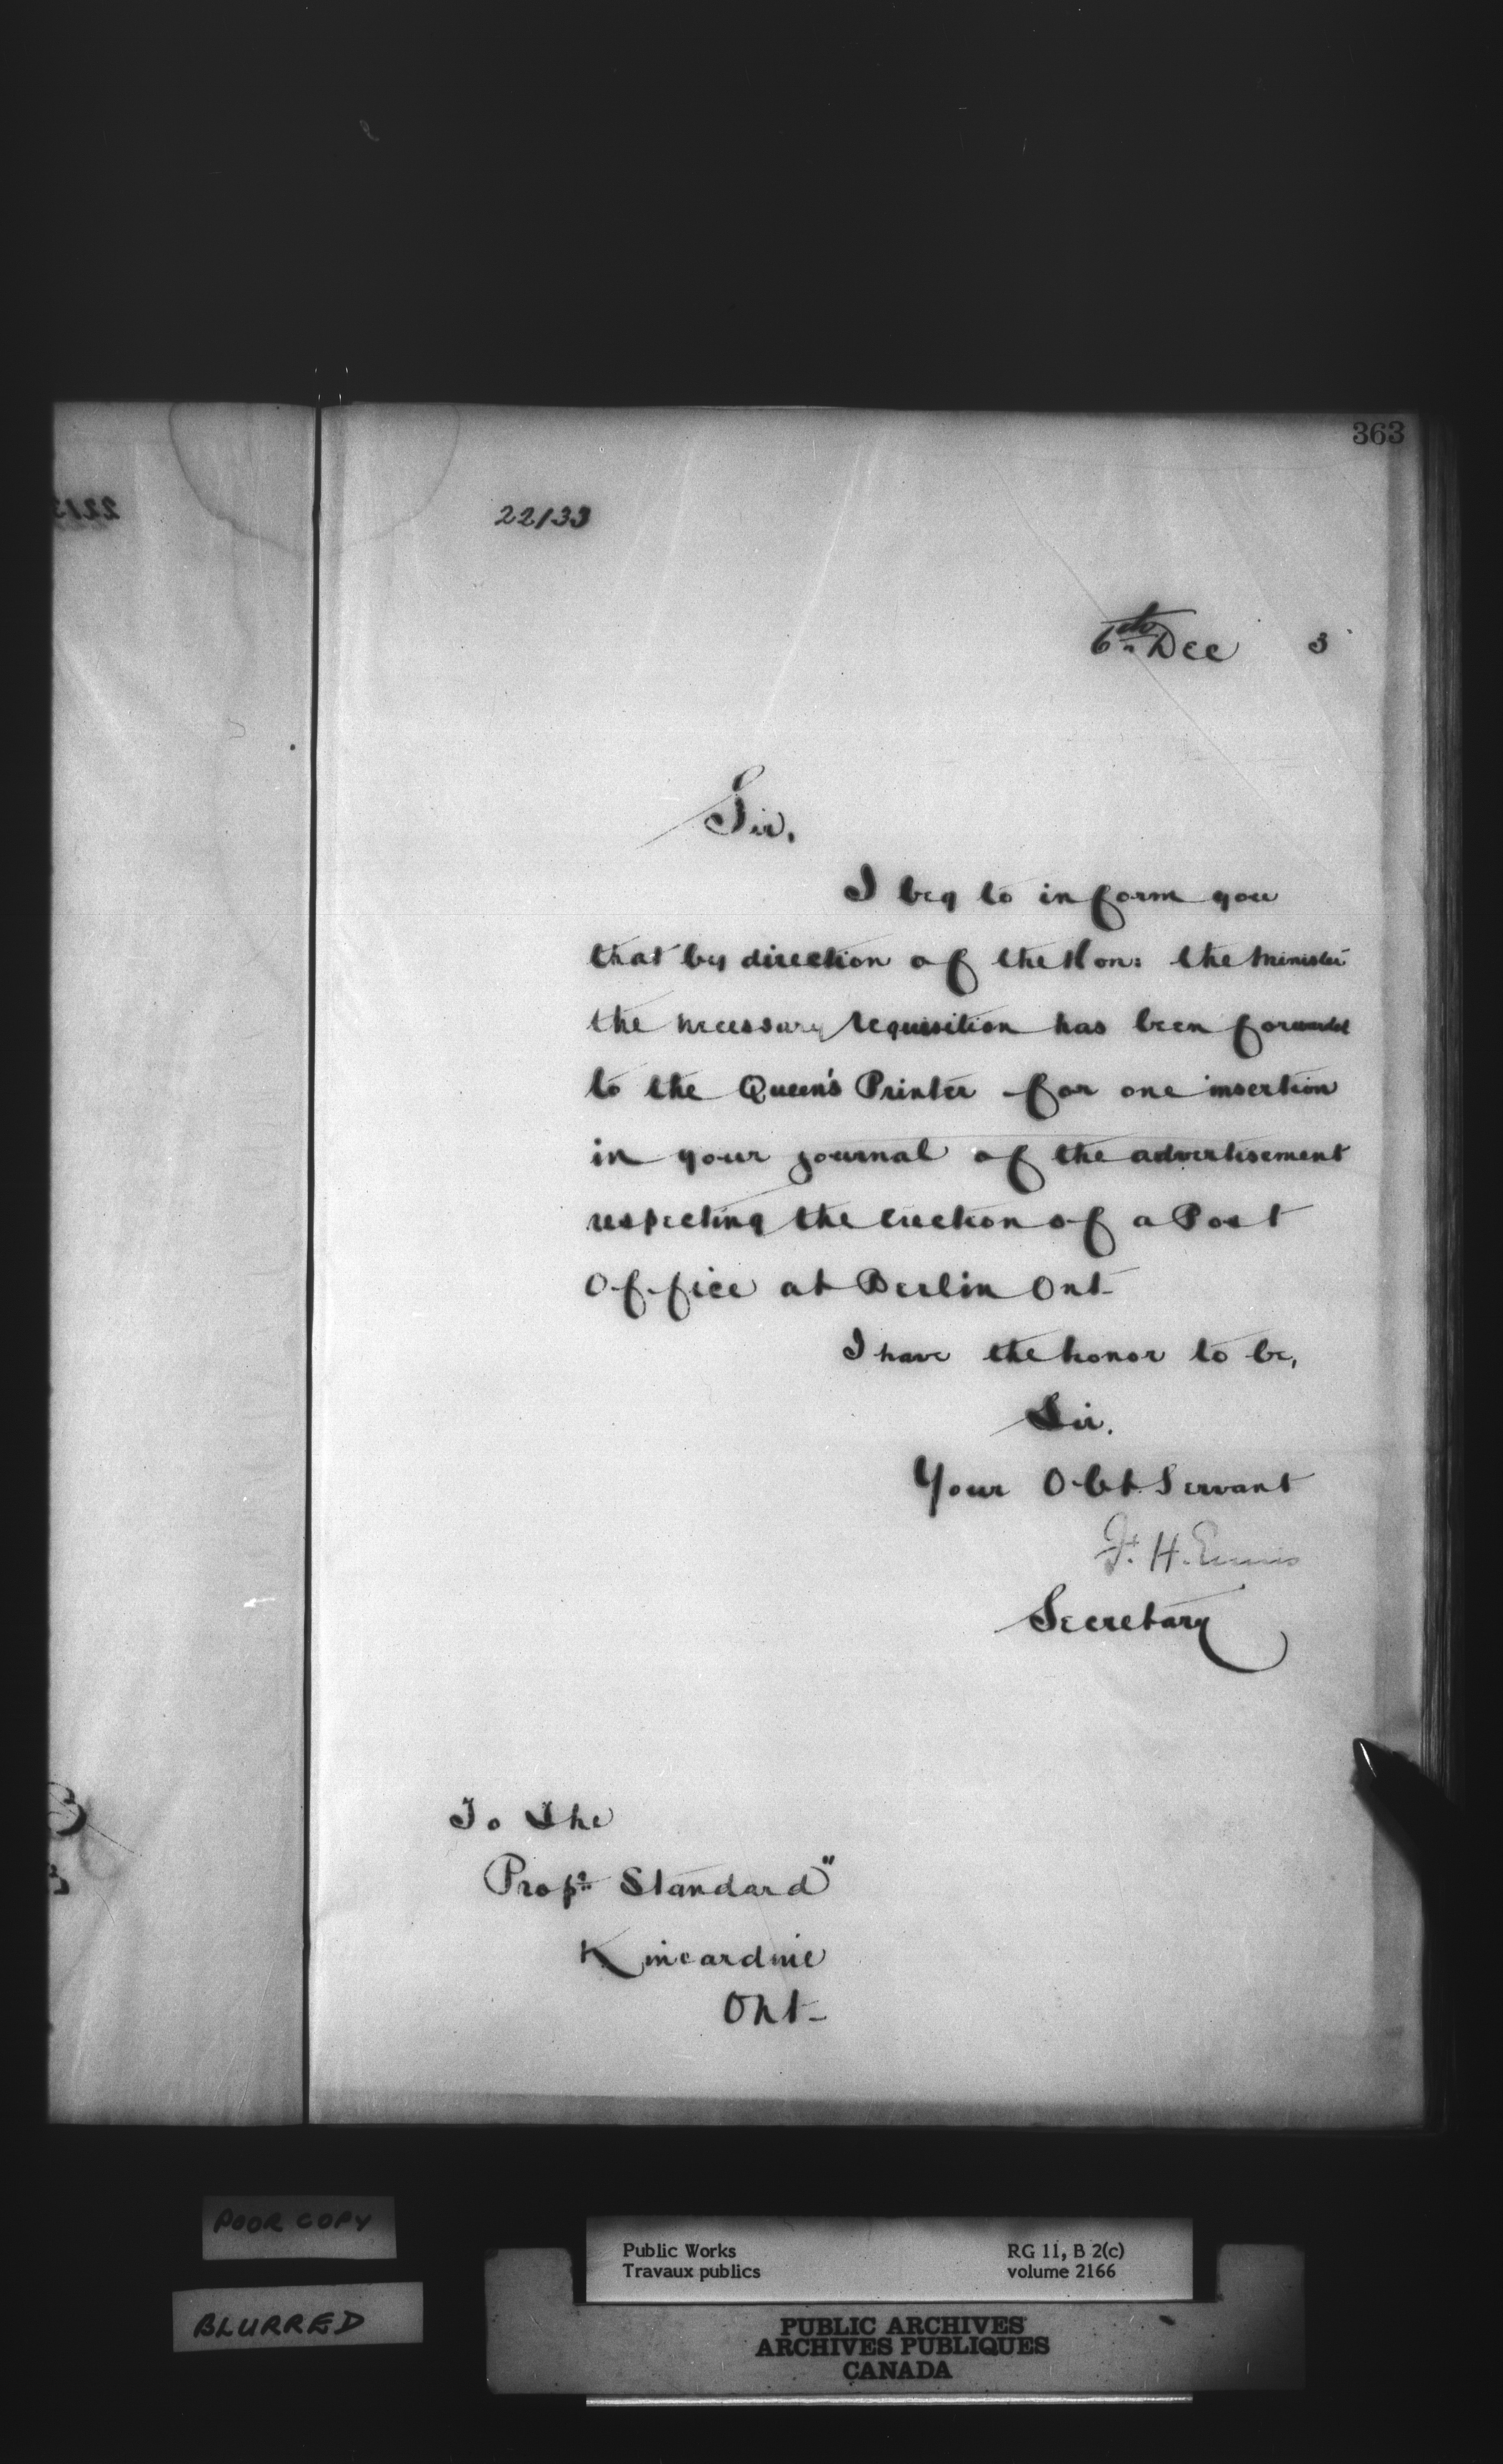 363
22133
6th Dec 3
Sir,
I beg to inform you
that by direction of the Hon: the Minister
the necessary requisition has been forwarded
to the Queen's Printer for one insertion
in your journal of the advertisement
respecting the erection of a Post
Office at Berlin Ont-
I have the honor to be,
Sir.
Your Obt Servant
F. H. Ennis
Secretary
To The
Propr Standard"
Kincardine
Ont-
POOR COPY
BLURRED
Public Works
Travaux publics
RG 11, B 2(c)
volume 2166
PUBLIC ARCHIVES
ARCHIVES PUBLIQUES
CANADA